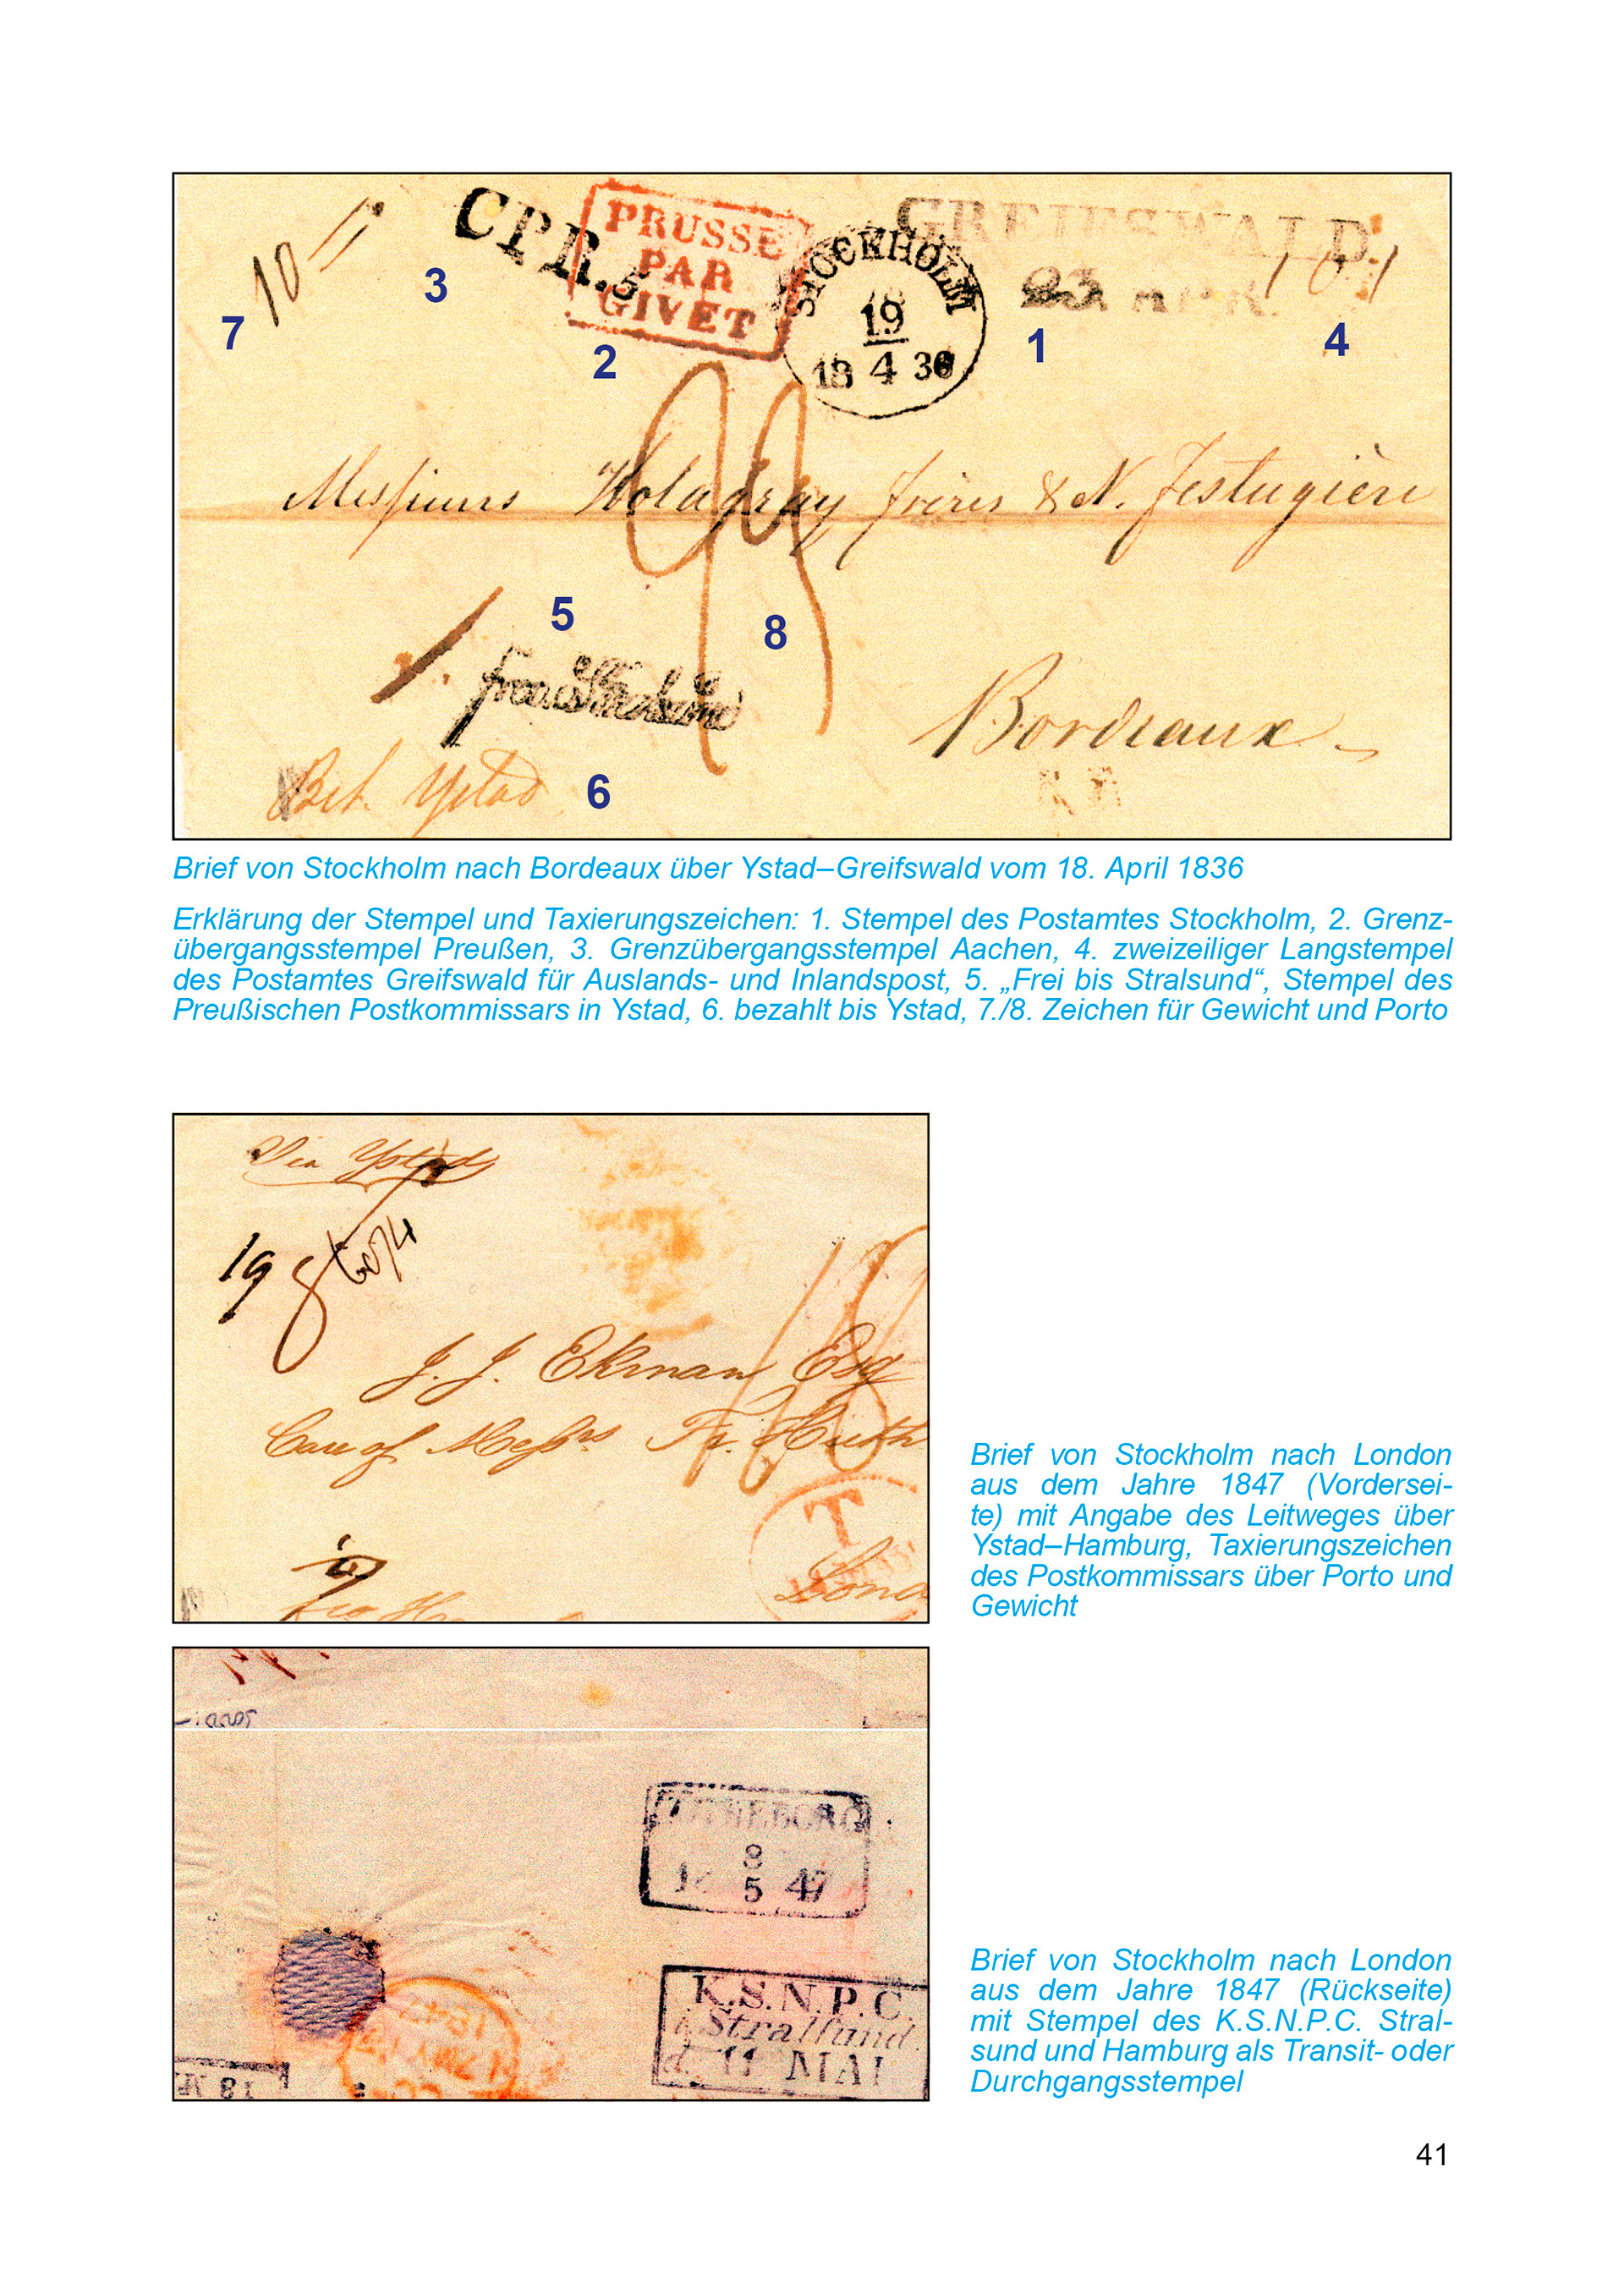 10
CPR.5
PRUSSE
PAR
GIVET
STOCKHOLM
19
18 4 36
GREIFSWALD
23
3
7
2
1
4
Messieurs Holagray frères & N. Festugière
5
8
Bordeaux
Bet. Ystad
6
Brief von Stockholm nach Bordeaux über Ystad–Greifswald vom 18. April 1836
Erklärung der Stempel und Taxierungszeichen: 1. Stempel des Postamtes Stockholm, 2. Grenz-
übergangsstempel Preußen, 3. Grenzübergangsstempel Aachen, 4. zweizeiliger Langstempel
des Postamtes Greifswald für Auslands- und Inlandspost, 5. „Frei bis Stralsund“, Stempel des
Preußischen Postkommissars in Ystad, 6. bezahlt bis Ystad, 7./8. Zeichen für Gewicht und Porto
Via Ystad
19
J. J. Ekman Esq
Care of Messrs Fr. Huth
T
Lond
Brief von Stockholm nach London
aus dem Jahre 1847 (Vordersei-
te) mit Angabe des Leitweges über
Ystad–Hamburg, Taxierungszeichen
des Postkommissars über Porto und
Gewicht
8
5 47
K.S.N.P.C.
Stralsund.
d. 11 MAI
Brief von Stockholm nach London
aus dem Jahre 1847 (Rückseite)
mit Stempel des K.S.N.P.C. Stral-
sund und Hamburg als Transit- oder
Durchgangsstempel
41